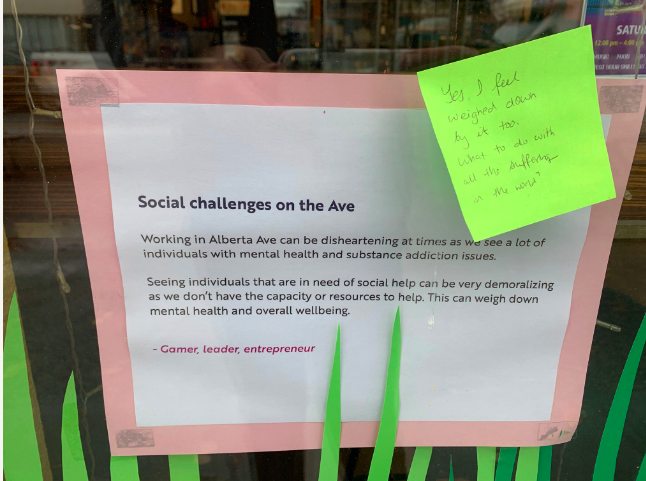 SATU
12:00 pm - 4:00
Yes, I feel
weighed down
by it too.
What to do with
all the suffering
in the world?
Social challenges on the Ave
Working in Alberta Ave can be disheartening at times as we see a lot of
individuals with mental health and substance addiction issues.
Seeing individuals that are in need of social help can be very demoralizing
as we don't have the capacity or resources to help. This can weigh down
mental health and overall wellbeing.
- Gamer, leader, entrepreneur